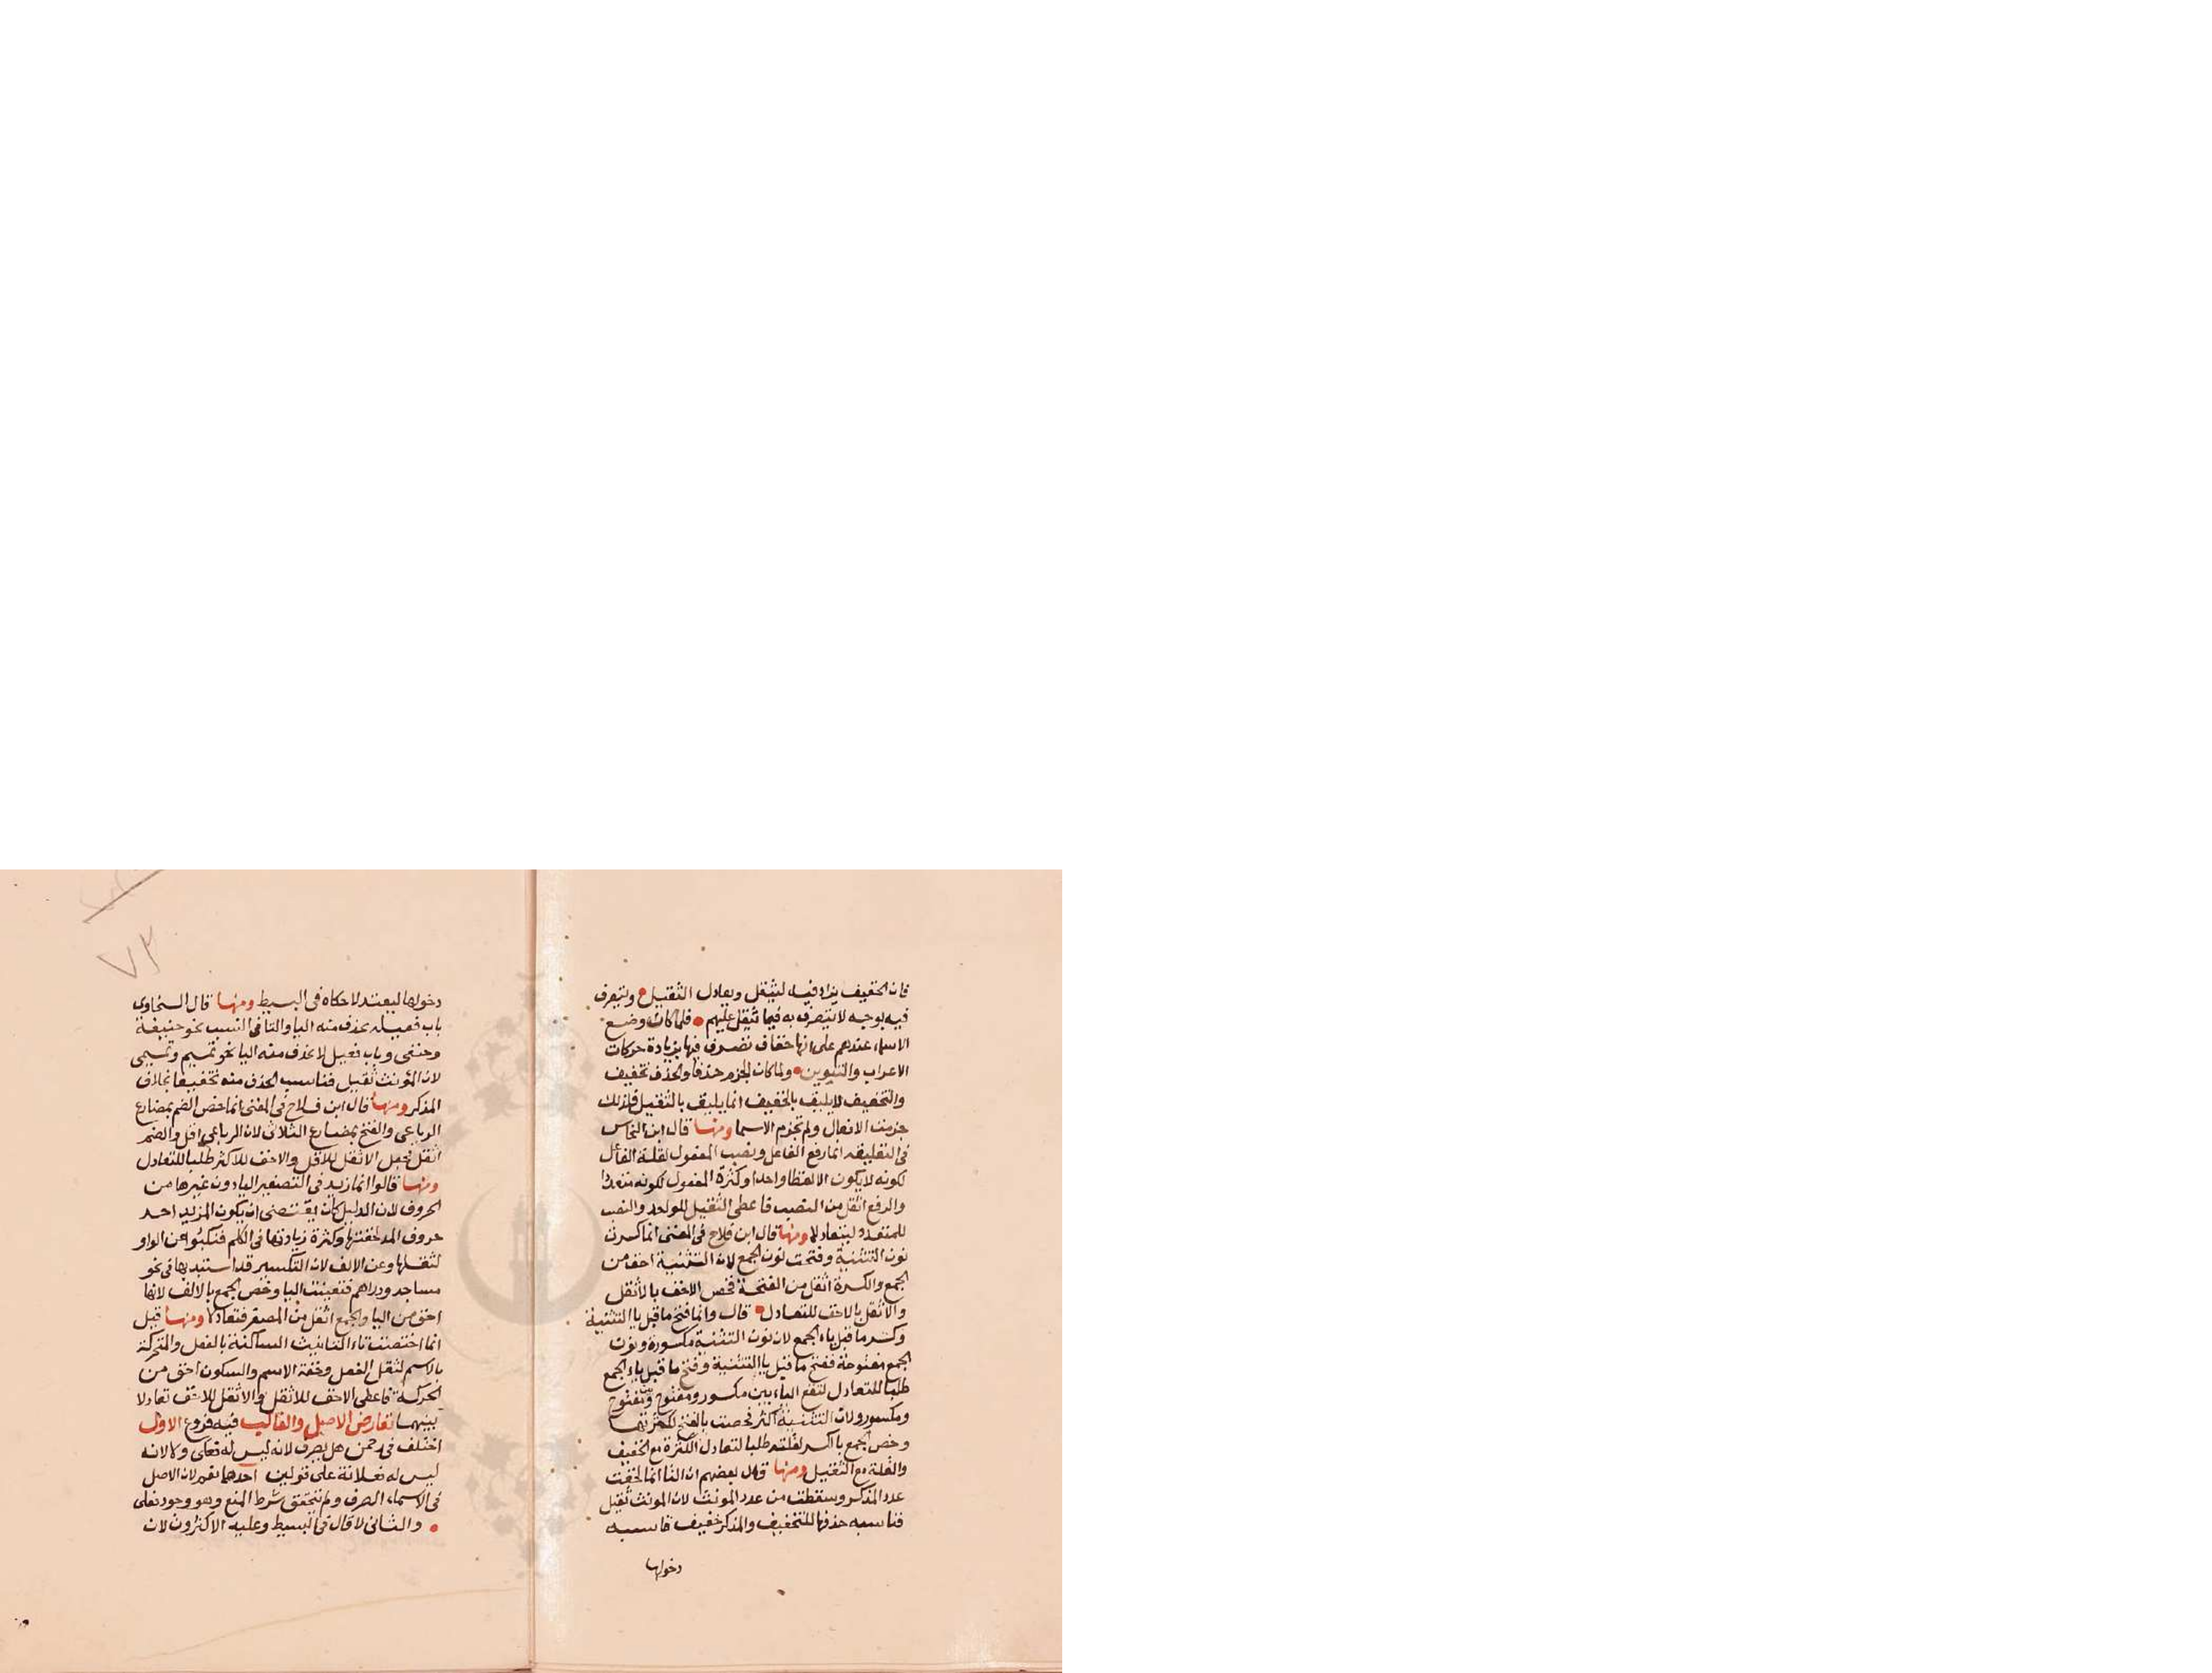 فان الخفيف يزاد فيه ليثقل ويعادل الثقيل ويتصرف
فيه بوجه لا يتصرف به فيما تثقل عليهم فلما كان وضع
الاسماء عندهم على انها خفاف تصرف فيها بزيادة حركات
الاعراب والتنوين ولما كان الجزم حذفا والحذف تخفيف
والتخفيف لا يليق بالخفيف انما يليق بالثقيل فلذلك
جزمت الافعال ولم تجزم الاسما ومنها قال ابن النحاس
فى التعليقه انما رفع الفاعل ونصب المفعول لقلة الفاعل
لكونه لا يكون الا لفظا واحدا وكثرة المفعول لكونه متعددا
والرفع اثقل من النصب فاعطى الثقيل للواحد والنصب
للمتعدد ليتعادلا ومنها قال ابن فلاح فى المغنى انما كسرت
نون التثنية وفتحت نون الجمع لان التثنية اخف من
الجمع والكسرة اثقل من الفتحة فخص الاخف بالاثقل
والاثقل بالاخف للتعادل قال وانما فتح ما قبل يا التثنية
وكسر ما قبل ياء الجمع لان نون التثنية مكسورة ونون
الجمع مفتوحة ففتح ما قبل يا التثنية وفتح ما قبل ياء الجمع
طلبا للتعادل لتقع الياء بين مكسور ومفتوح ومفتوح
ومكسور ولان التثنية اكثر فخصت بالفتح لكثرتها
وخص الجمع بالكسر لقلته طلبا لتعادل الكثرة مع الخفيف
والقلة مع الثقيل ومنها قال بعضهم ان التا انما لحقت
عدد المذكر وسقطت من عدد المونث لان المونث ثقيل
فناسبه حذفها للتخفيف والمذكر خفيف فناسبه
دخولها
٧٣
دخولها ليعتدلا حكاه فى البسيط ومنها قال السخاوى
باب فعيله يحذف منه اليا والتا فى النسب نحو حنيفة
وحنفى وباب فعيل لا يحذف منه اليا نحو تميم وتميمى
لان المؤنث ثقيل فناسب الحذف منه تخفيفا بخلاف
المذكر ومنها قال ابن فلاح فى المغنى انما خص الضم بمضارع
الرباعى والفتح بمضارع الثلاثى لان الرباعى اقل والضم
اثقل فجعل الاثقل للاقل والاخف للاكثر طلبا للتعادل
ومنها قالوا انما زيد فى التصغير اليا دون غيرها من
الحروف لان الدليل كان يقتضى ان يكون المزيد احد
حروف المد لخفتها وكثرة زيادتها فى الكلم فنكبوا عن الواو
لثقلها وعن الالف لان التكسير قد استبد بها فى نحو
مساجد ودراهم فتعينت اليا وخص الجمع بالالف لانها
اخف من اليا والجمع اثقل من المصغر فتعادلا ومنها قيل
انما اختصت تاء التانيث الساكنة بالفعل والمتحركة
بالاسم لثقل الفعل وخفة الاسم والسكون اخف من
الحركة فاعطى الاخف للاثقل والاثقل للاخف تعادلا
بينهما تعارض الاصل والغالب فيه فروع الاول
اختلف فى رحمن هل يصرف لانه ليس له فعلى ولا لانه
ليس له فعلانة على قولين احدهما نعم لان الاصل
فى الاسماء الصرف ولم يتحقق شرط المنع وهو وجود فعلى
والثانى لا قال فى البسيط وعليه الاكثرون لان